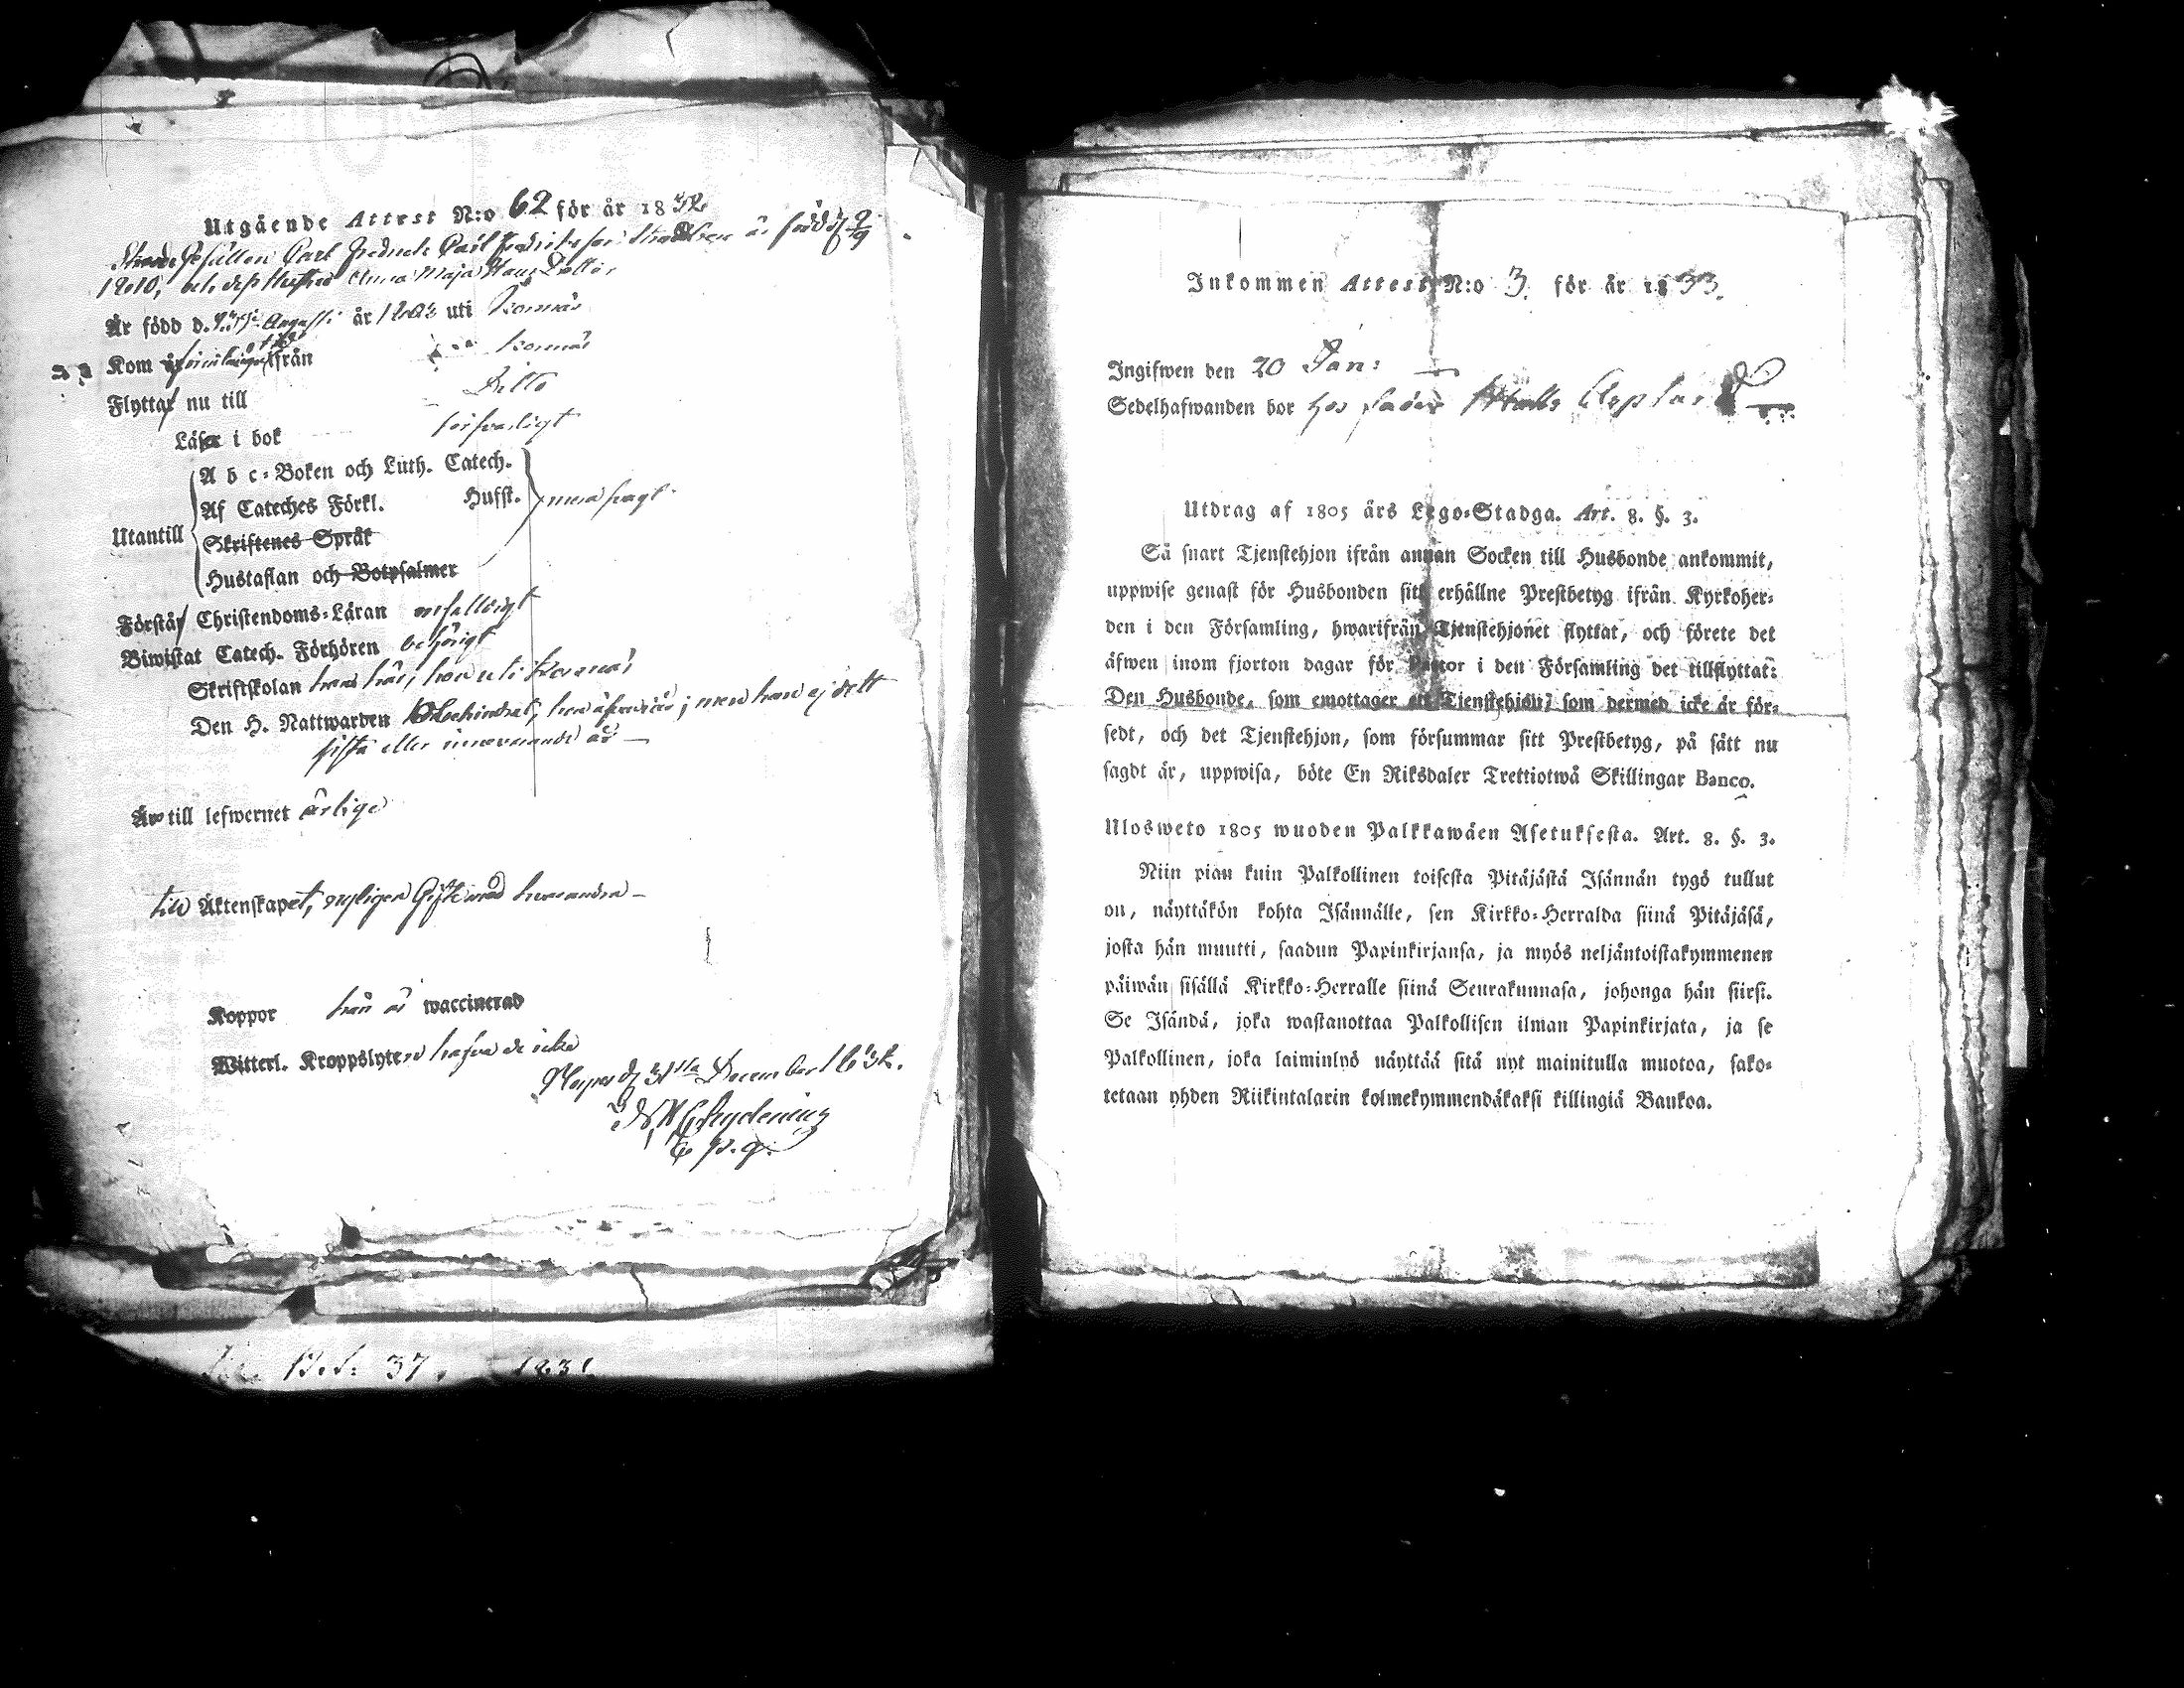 Utgående Attest N:o 62 för år 1832
Gesällen Carl Fredrik Carl Fredriksson är född d. 2/9
1810, och dess Hustru Anna Maja Hans Dotter
Är född d. Augusti år uti Kornnäs
Kom ifrån Kornnäs
Flytta nu till Ditto
Läsa i bok försvarligt
A b c-Boken och Luth. Catech.
Af Cateches Förkl. Husst. nera sagt
Utantill
Skriftenes Språk
Hustaflan och Botpsalmer
Förstå Christendoms-Läran enfalldigt
Biwistat Catech. Förhören behörigt
Skriftskolan han här, hon uti Kornnäs
Den H. Nattwarden Obehindrat, hon äfven är; men han ej dett
sista eller innevarande år —
Äro till lefwernet ärlige
till Äktenskapet, nyligen Gifte med hvarandra —
Koppor han är waccinerad
Witterl. Kroppslyten hafva de icke
d. 31sta December 1832.
Inkommen Attest N:o 3. för år 1833.
Ingifwen den 20 Jan:
Sedelhafwanden bor hos fader Matts Asplund
Utdrag af 1805 års Lego-Stadga. Art. 8. §. 3.
Så snart Tjenstehjon ifrån annan Socken till Husbonde ankommit,
uppwise genast för Husbonden sitt erhållne Prestbetyg ifrån Kyrkoher-
den i den Församling, hwarifrån Tjenstehjonet flyttat, och förete det
äfwen inom fjorton dagar för Pastor i den Församling det tillflyttat:
Den Husbonde, som emottager ett Tjenstehjon, som dermed icke är för-
sedt, och det Tjenstehjon, som försummar sitt Prestbetyg, på sätt nu
sagdt är, uppwisa, böte En Riksdaler Trettiotwå Skillingar Banco.
Ulosweto 1805 wuoden Palkkawäen Asetuksesta. Art. 8. §. 3.
Niin pian kuin Palkollinen toisesta Pitäjästä Isännän tygö tullut
on, näyttäkön kohta Isännälle, sen Kirkko-Herralda siinä Pitäjäsä,
josta hän muutti, saadun Papinkirjansa, ja myös neljäntoistakymmenen
päiwän sisällä Kirkko-Herralle siinä Seurakunnasa, johonga hän siirsi.
Se Isändä, joka wastanottaa Palkollisen ilman Papinkirjata, ja se
Palkollinen, joka laiminlyö näyttää sitä nyt mainitulla muotoa, sako-
tetaan yhden Riikintalarin kolmekymmendäkaksi killingiä Bankoa.